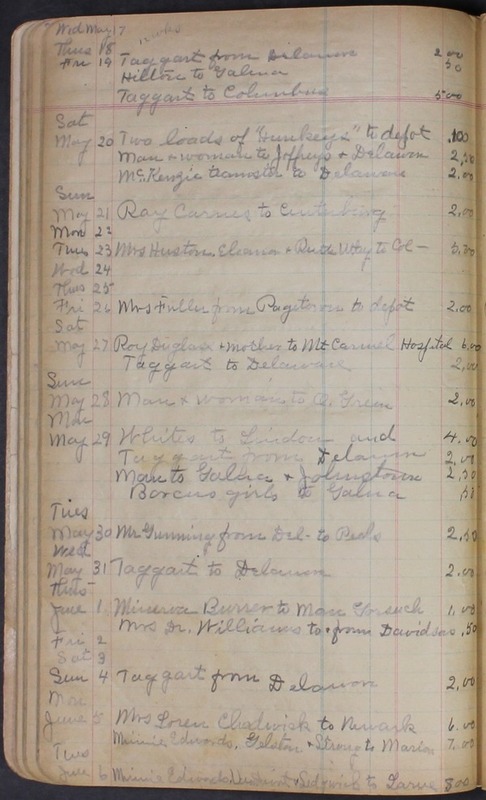 Wed May 17
Thurs 18
Fri 19 Taggart from Delawon 2.00
Hilltoc to Galena 50
Taggart to Columbus 5.00
Sat
May 20 Two loads of "Hunkeys" to depot 1.00
Man & woman to Joffreys & Delawon 2.50
McKenzie transfer to Delaware 2.00
Sun
May 21 Ray Carnes to Centerburg 2.00
Mon 22
Tues 23 Mrs Huston, Eleanor & Ruth Utley to Col- 5.00
Wed 24
Thurs 25
Fri 26 Mrs Fuller from Pagetown to depot 2.00
Sat
May 27 Roy Duglass & mother to Mt Carmel Hospital 6.00
Taggart to Delaware 2.00
Sun
May 28 Man & woman to O. Green 2.00
Mon
May 29 Whites to Lindon and 4.00
Taggart from Delawon 2.00
Man to Galena & Johnstown 2.50
Borcus girls to Galena
Tues
May 30 Mr Gunning from Del- to Peels 2.50
Wed
May 31 Taggart to Delawon 2.00
Thurs
June 1 Minerva Burrer to Marc 1.00
Mrs Dr. Williams to & from Davidson .50
Fri 2
Sat 3
Sun 4 Taggart from Delawon 2.00
Mon
June 5 Mrs Loren Chadwick to Newark 6.00
Minnie Edwards, Gelston & Strong to Marion 7.00
Tues
June 6 Minnie Edwards & Sedgwick to 8.00